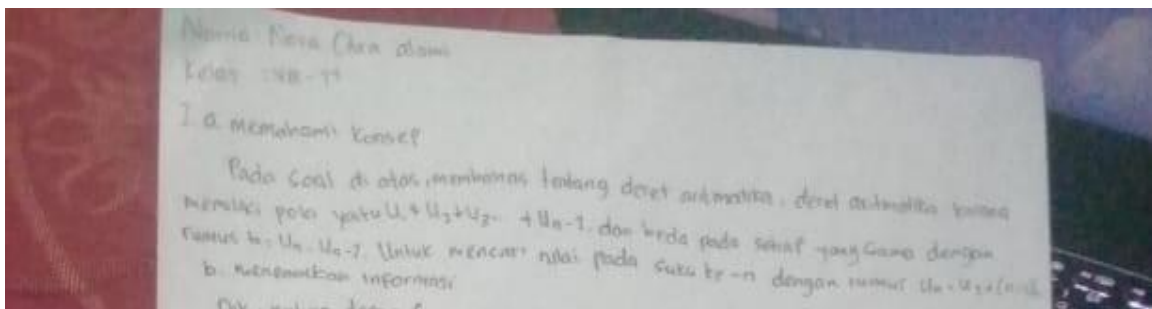 Nama
Kelas
I a. memahami konsep
Pada soal di atas, membahas tentang deret aritmatika, deret aritmatika karena
memiliki pola yaitu U₁ + U₂ + U₃... + Uₙ-1. dan beda pada setiap yang sama dengan
rumus b = Uₙ - Uₙ-1. Untuk mencari nilai pada suku ke-n dengan rumus
b. menemukan informasi